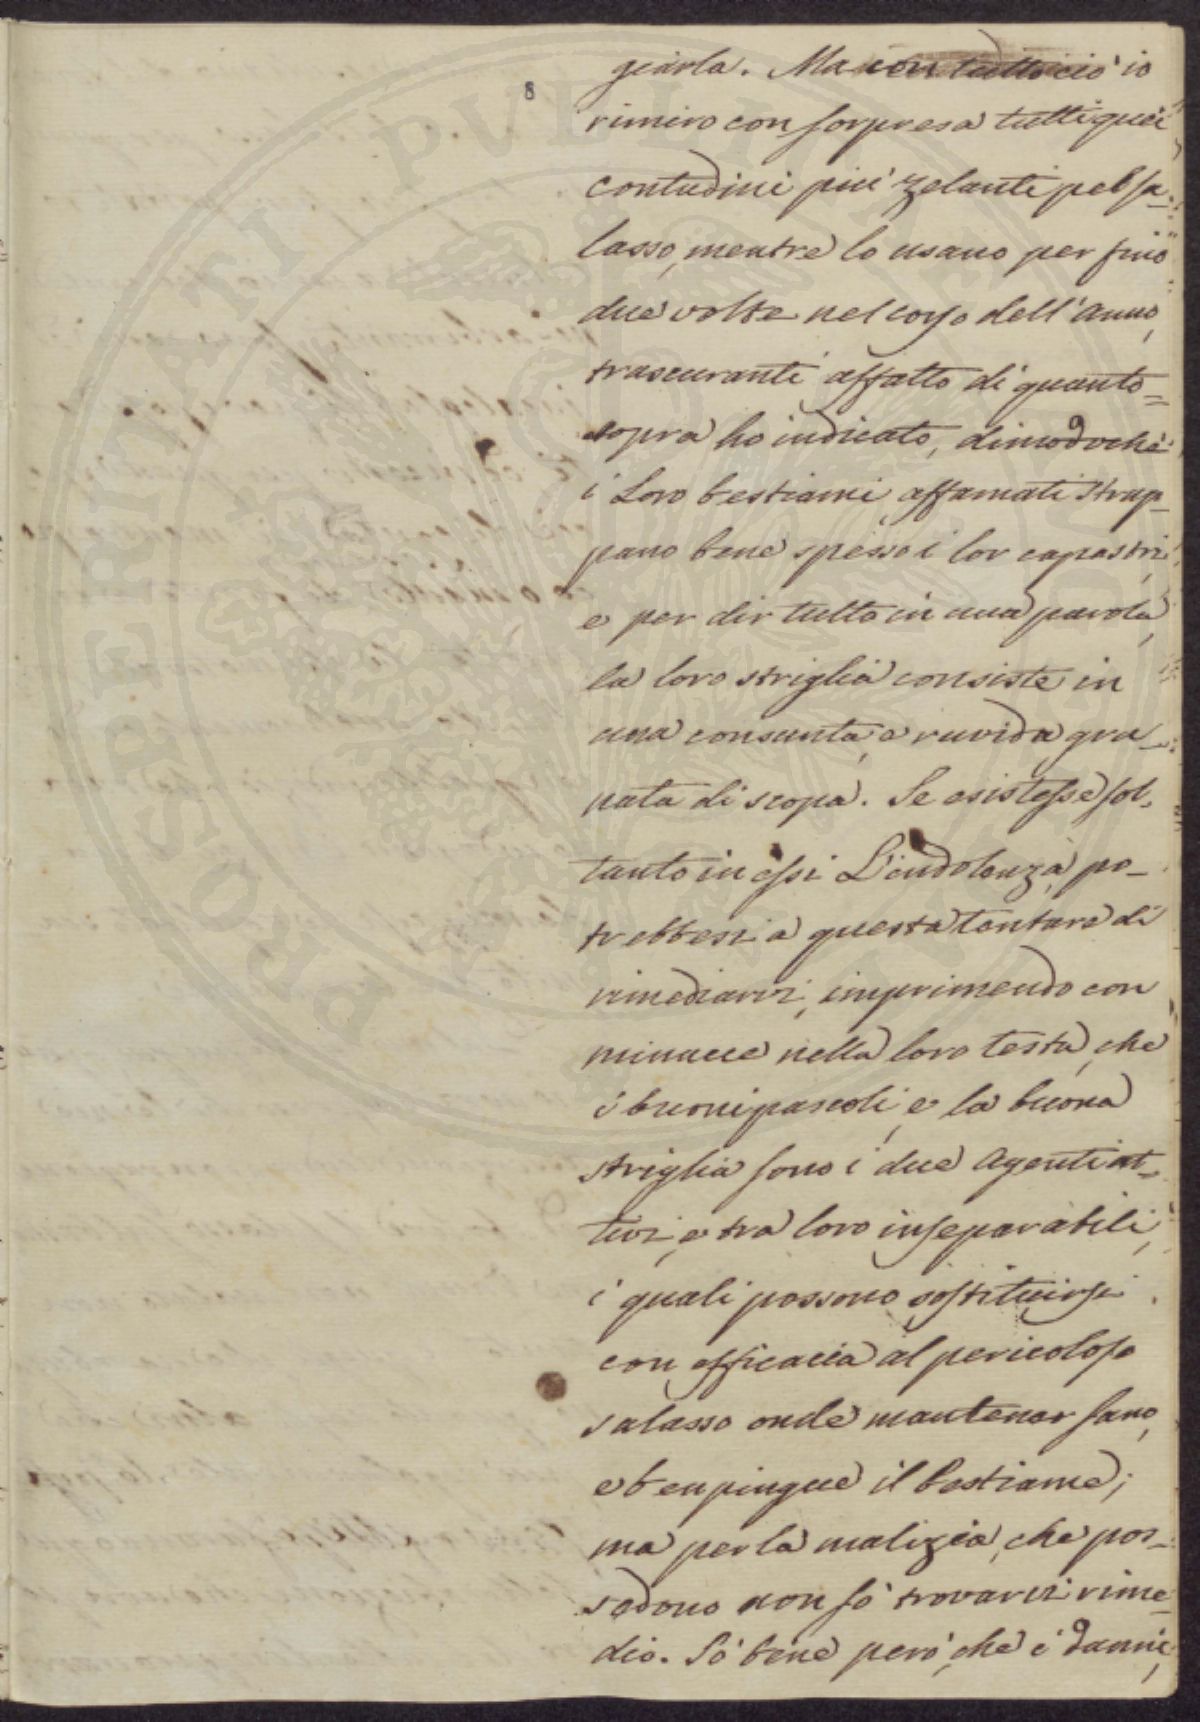 8
giarla. Ma con tutto ciò io
rimiro con sorpresa tutti quei
contadini più zelanti pel sa-
lasso, mentre lo usano per fino
due volte nel corso dell'anno,
trascuranti affatto di quanto
sopra ho indicato, dimodochè
i Loro bestiami affamati strap-
pano bene spesso i lor capestri,
e per dir tutto in una parola,
la loro striglia consiste in
una consunta, e ruvida gra-
nata di scopa. Se esistesse sol-
tanto in essi L'indolenza, po-
trebbesi a questa tentare di
rimediarvi, imprimendo con
minacce nella loro testa, che
i buoni pascoli, e la buona
striglia sono i due Agenti at-
tivi, e tra loro inseparabili,
i quali possono sostituirsi
con efficacia al pericoloso
salasso onde mantener sano,
e ben pingue il bestiame;
ma per la malizia, che pos-
sedono non sò trovarvi rime-
dio. Sò bene però, che i danni,
PROSPERITATI PVBLICAE